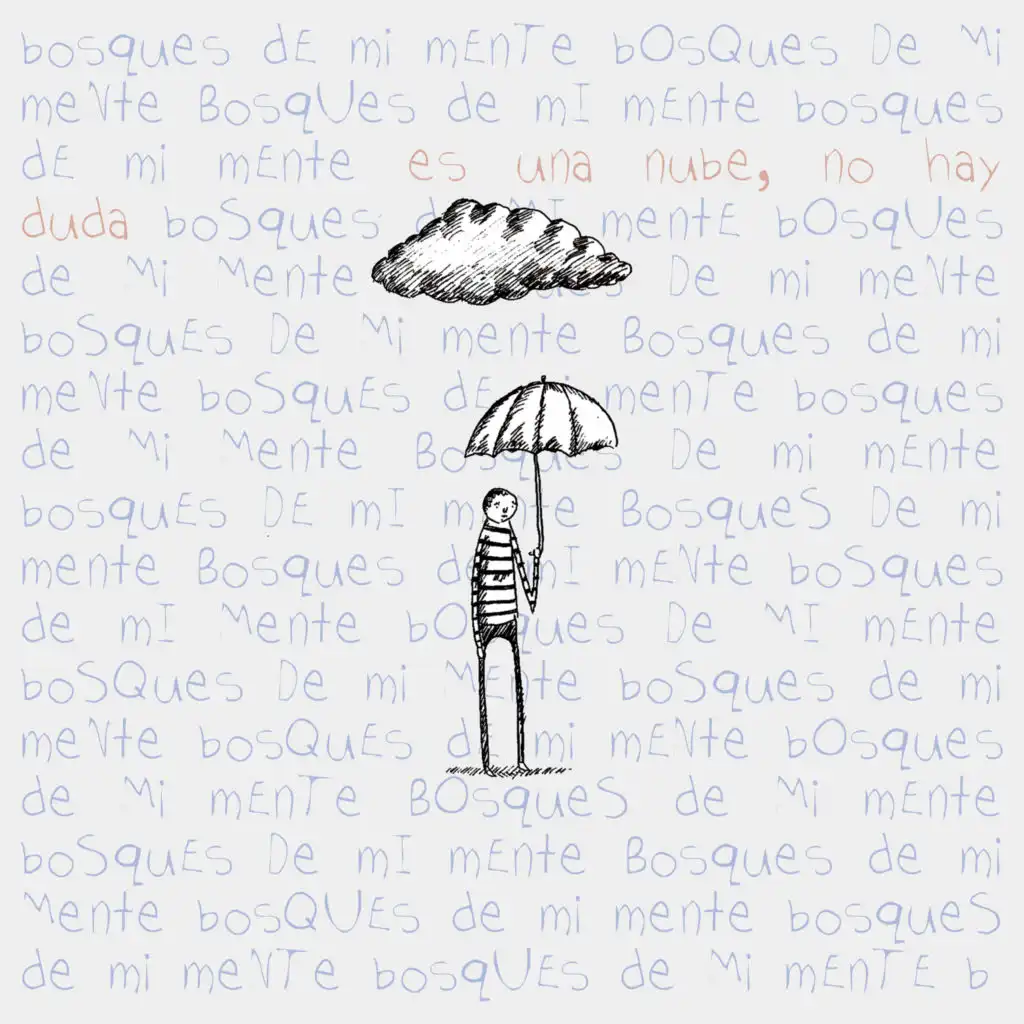 bosques dE mi mEnTe bOsQues De Mi
meNte BosqUes de mI mEnte bosques
dE mi mEnte es una nube, no hay
duda boSques mentE bOsqUes
de Mi Mente De mi meNte
boSquEs De Mi mente Bosques de mi
meNte boSquEs dE menTe bosques
de Mi Mente Bosques De mi mEnte
bosquEs DE mI BosqueS De mi
mente Bosques mENte boSques
de mI Mente bOsques De MI mEnte
boSQues De mi MEnte boSques de mi
meNte bosQuEs mi mENte bOsques
de Mi mEnTe BOsqueS de Mi mEnte
boSquEs De mI mEnte Bosques de mi
Mente bosQUEs de mi mente bosqueS
de mi meNTe bosqUEs de Mi mEnTE b